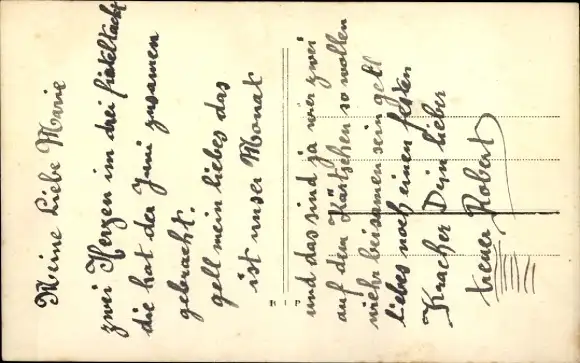 Meine Liebe Marie
zwei Herzen im drei fiakeltackt
die hat der Juni zusamen
gebracht.
gell mein liebes das
ist unser Monat
und das sind ja wier zwei
auf dem Kärtchen so wollen
wiehr beisamen sein gell
liebes noch einen festen
Kracher Dein lieber
treuer Robert